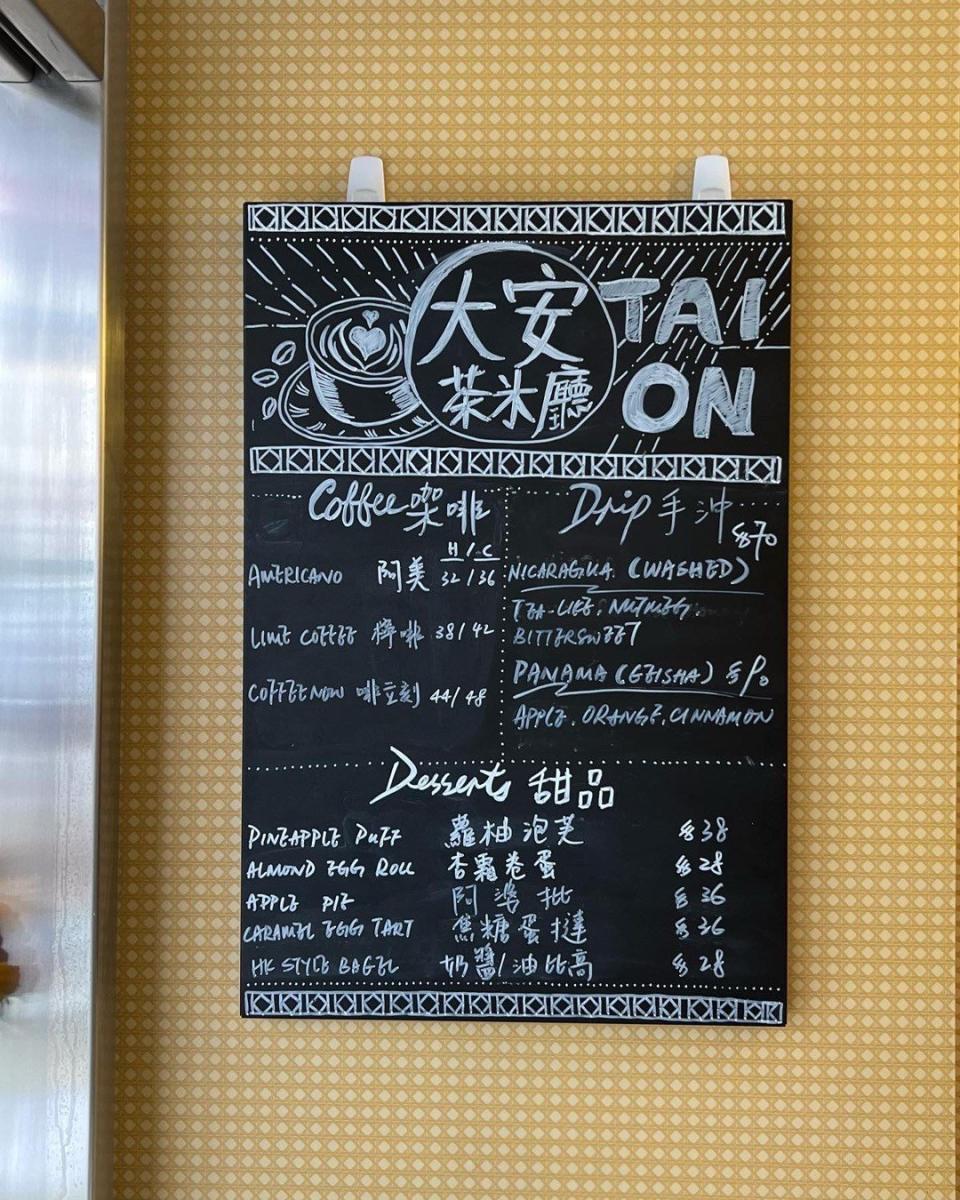 大安
茶米廳
TAI
ON
Coffee 咖啡
H / C
AMERICANO 阿美 32 / 36
LIME COFFEE 檸啡 38 / 42
COFFEE NOW 啡立刻 44 / 48
Drip 手沖
$70
NICARAGUA (WASHED)
TEA-LIKE. NUTMEG.
BITTERSWEET
PANAMA (GEISHA)
APPLE. ORANGE. CINNAMON
Desserts 甜品
PINEAPPLE PUFF 蘿柚泡芙 $38
ALMOND EGG ROLL 杏霜卷蛋 $28
APPLE PIE 阿婆批 $36
CARAMEL EGG TART 焦糖蛋撻 $36
HK STYLE BAGEL 奶醬/油比高 $28